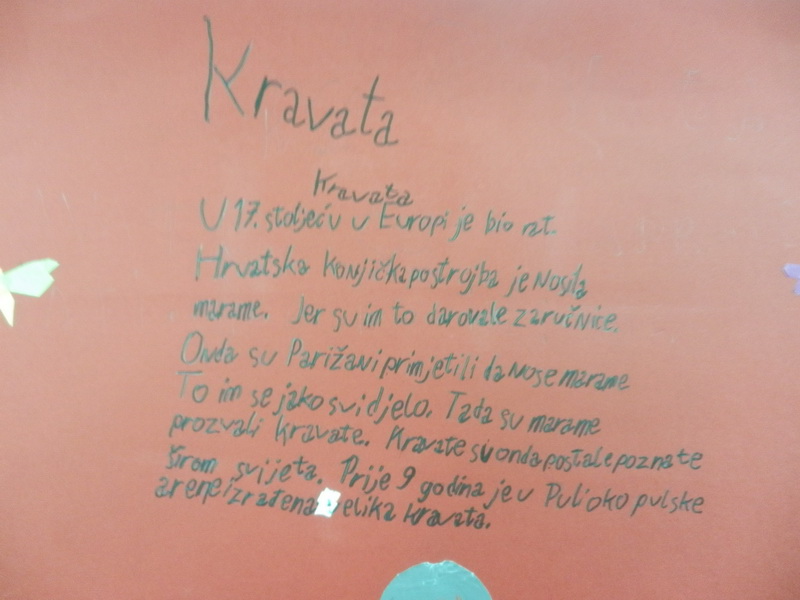 Kravata
Kravata
U 17. stoljeću u Europi je bio rat.
Hrvatska konjička postrojba je nosila
marame. Jer su im to darovale zaručnice.
Onda su Parižani primjetili da nose marame
To im se jako svidjelo. Tada su marame
prozvali kravate. Kravate su onda postale poznate
širom svijeta. Prije 9 godina je u Puli oko pulske
arene izrađena velika kravata.